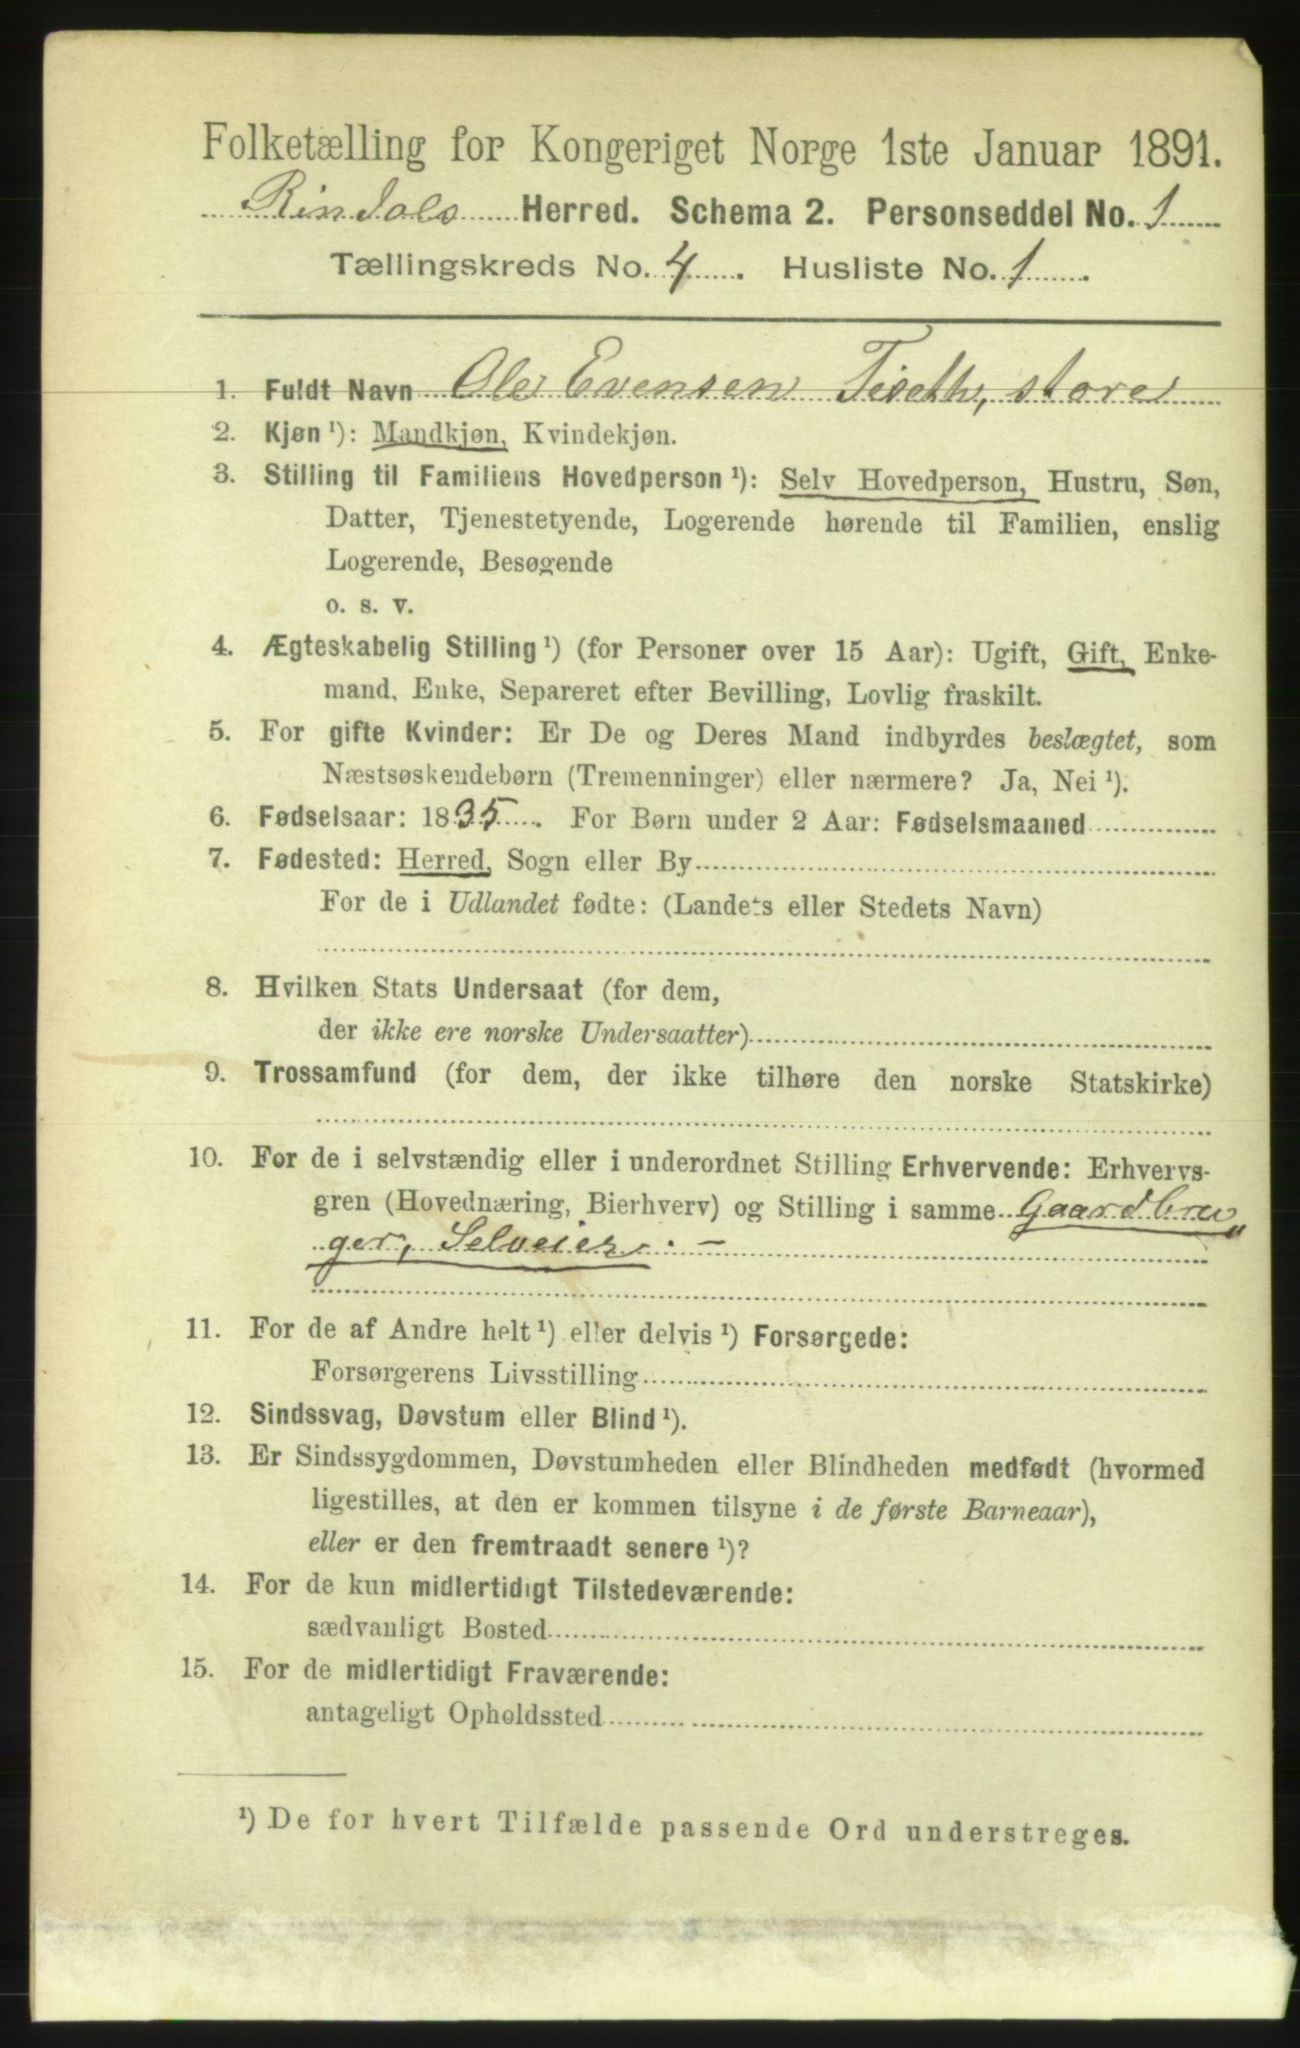 Folketælling for Kongeriget Norge 1ste Januar 1891.
Rindals Herred. Schema 2. Personseddel No. 1
Tællingskreds No. 4. Husliste No. 1.
1. Fuldt Navn Ole Evensen Tiseth, store
2. Kjøn ¹): Mandkjøn, Kvindekjøn.
3. Stilling til Familiens Hovedperson ¹): Selv Hovedperson, Hustru, Søn,
Datter, Tjenestetyende, Logerende hørende til Familien, enslig
Logerende, Besøgende
o. s. v.
4. Ægteskabelig Stilling ¹) (for Personer over 15 Aar): Ugift, Gift, Enke-
mand, Enke, Separeret efter Bevilling, Lovlig fraskilt.
5. For gifte Kvinder: Er De og Deres Mand indbyrdes beslægtet, som
Næstsøskendebørn (Tremenninger) eller nærmere? Ja, Nei ¹).
6. Fødselsaar: 1835. For Børn under 2 Aar: Fødselsmaaned
7. Fødested: Herred, Sogn eller By
For de i Udlandet fødte: (Landets eller Stedets Navn)
8. Hvilken Stats Undersaat (for dem,
der ikke ere norske Undersaatter)
9. Trossamfund (for dem, der ikke tilhøre den norske Statskirke)
10. For de i selvstændig eller i underordnet Stilling Erhvervende: Erhvervs-
gren (Hovednæring, Bierhverv) og Stilling i samme Gaardbru„
ger, Selveier. -
11. For de af Andre helt ¹) eller delvis ¹) Forsørgede:
Forsørgerens Livsstilling
12. Sindssvag, Døvstum eller Blind ¹).
13. Er Sindssygdommen, Døvstumheden eller Blindheden medfødt (hvormed
ligestilles, at den er kommen tilsyne i de første Barneaar),
eller er den fremtraadt senere ¹)?
14. For de kun midlertidigt Tilstedeværende:
sædvanligt Bosted
15. For de midlertidigt Fraværende:
antageligt Opholdssted
¹) De for hvert Tilfælde passende Ord understreges.